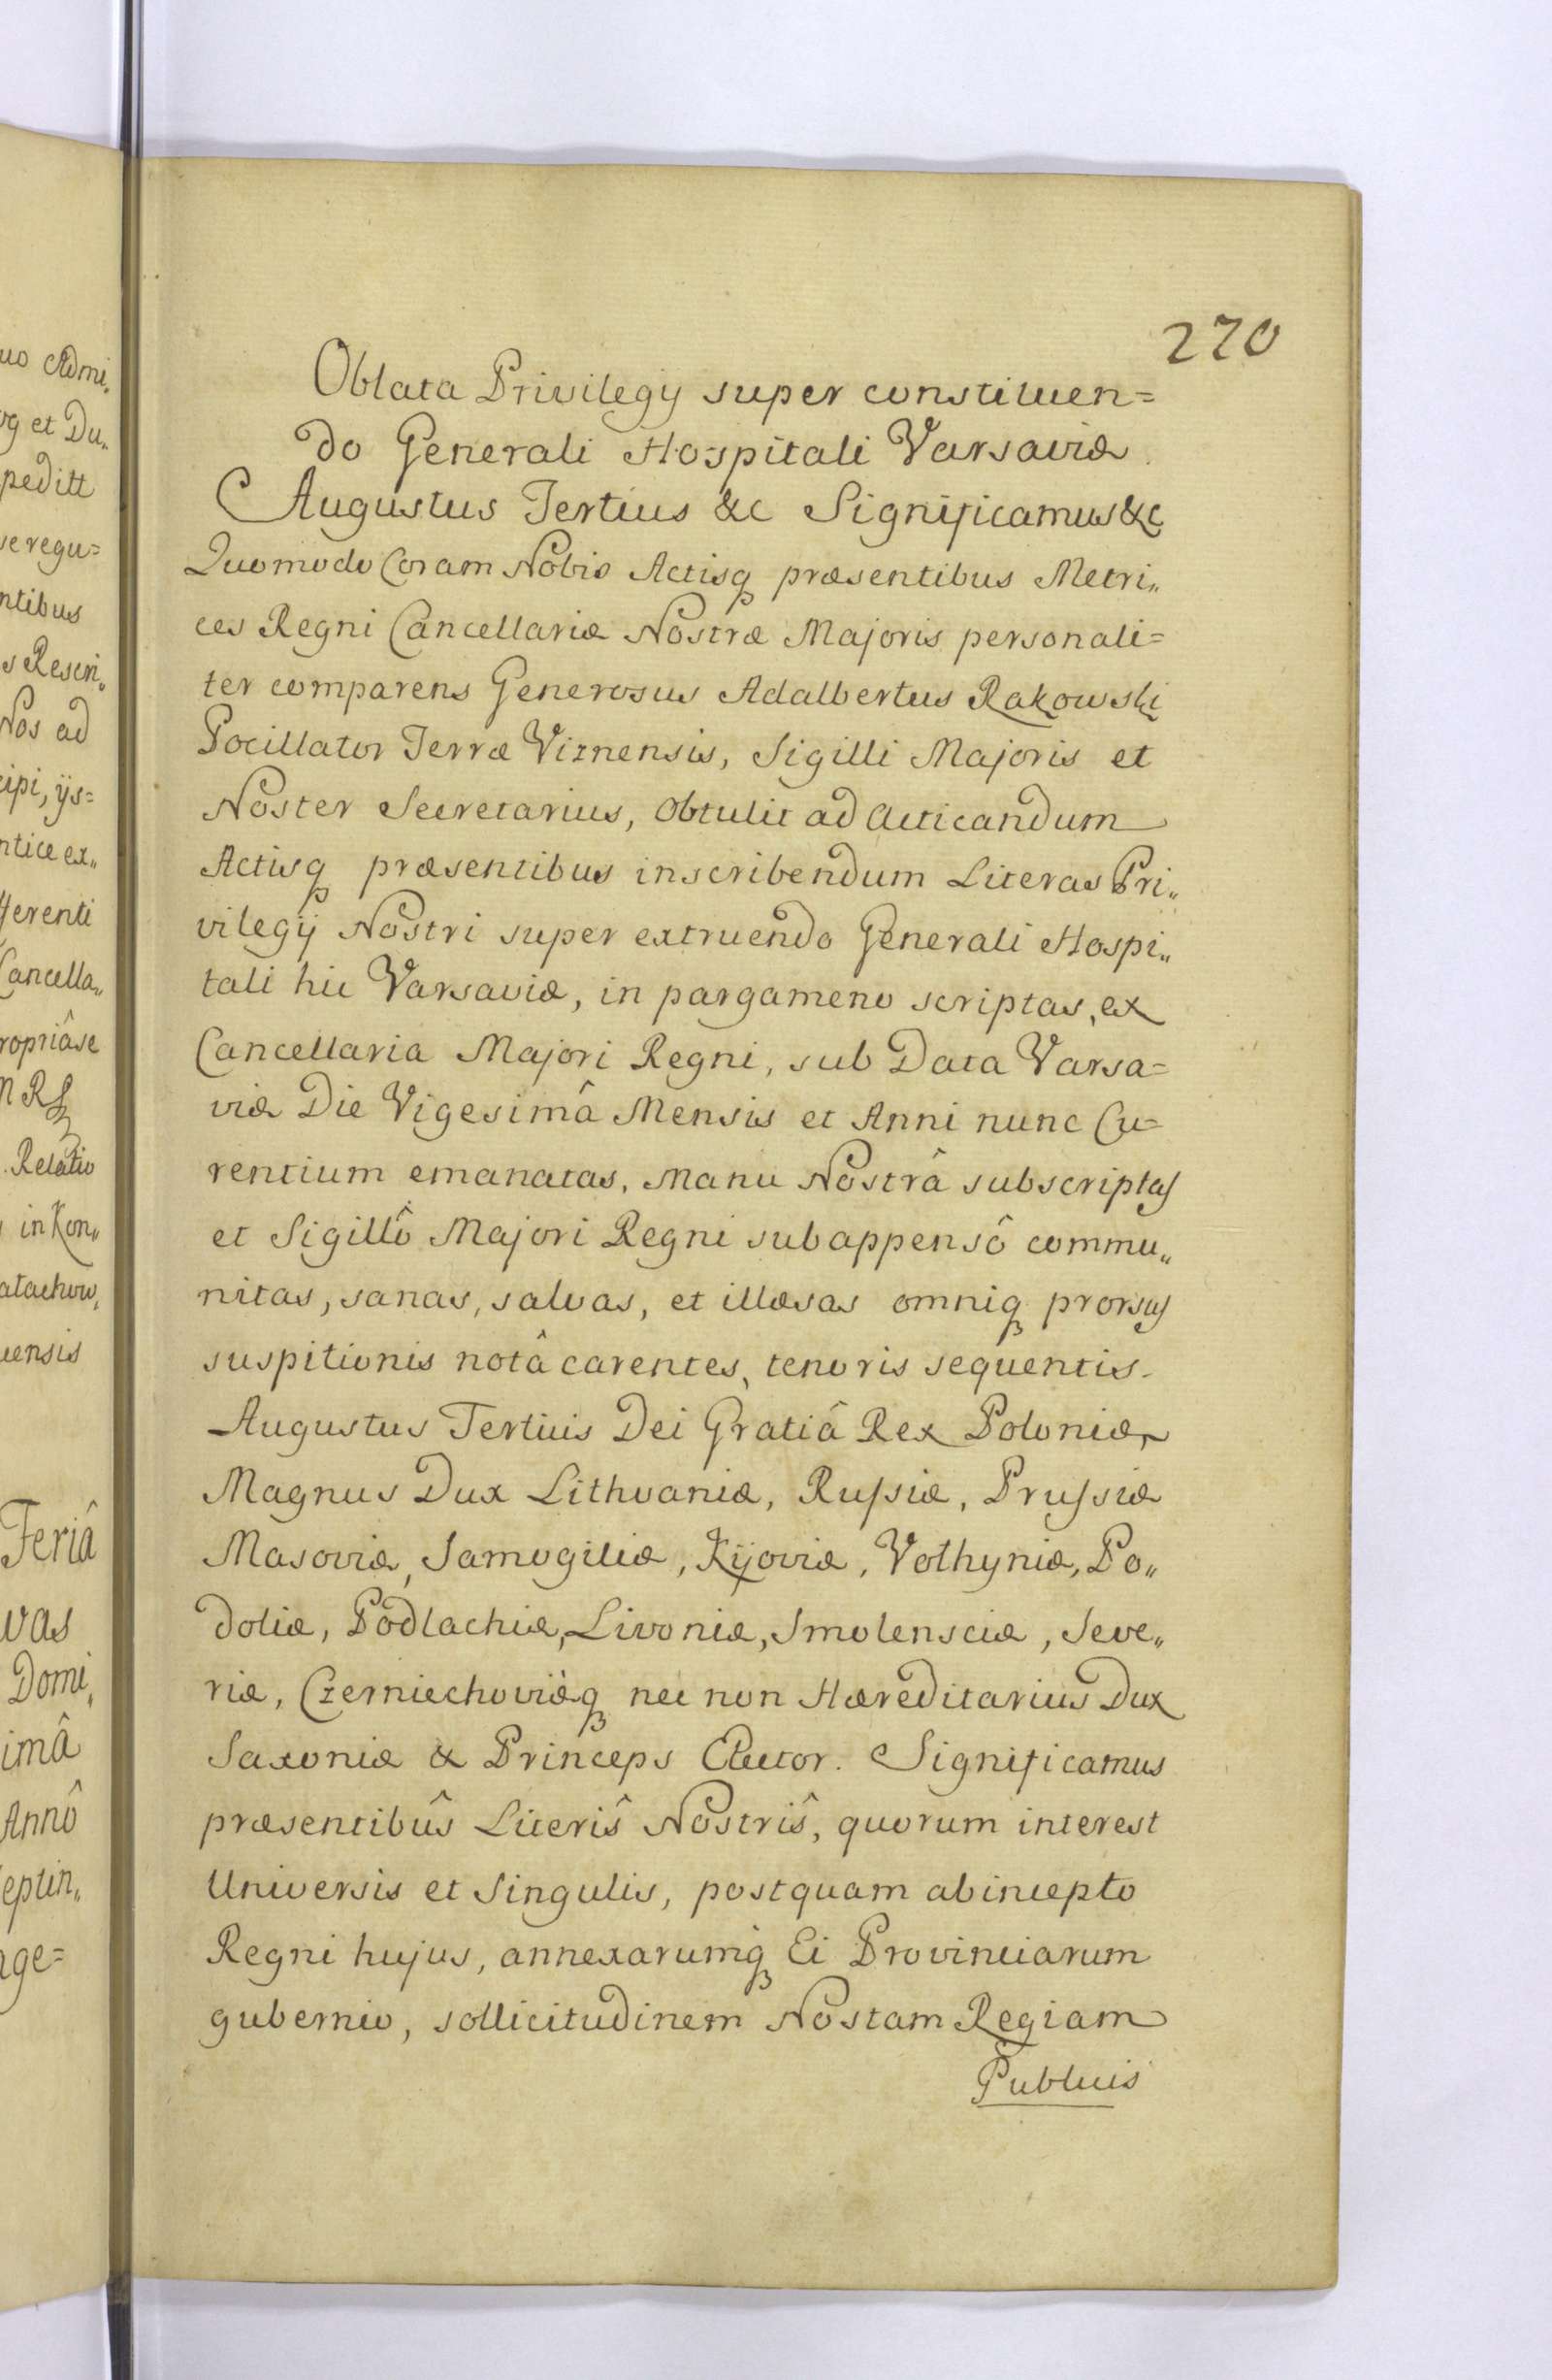 270
Oblata Privilegij super constituen=
do Generali Hospitali Varsaviæ
Augustus Tertius &c Significamus &c
Quomodo Coram Nobis Actisq præsentibus Metri„
ces Regni Cancellariæ Nostræ Majoris personali=
ter comparens Generosus Adalbertus Rakowski
Pocillator Terræ Viznensis, Sigilli Majoris et
Noster Secretarius, obtulit ad acticandum
Actisq præsentibus inscribendum Literas Pri„
vilegij Nostri super extruendo Generali Hospi„
tali hic Varsaviæ, in pargameno scriptas, ex
Cancellaria Majori Regni, sub Data Varsa=
viæ Die Vigesimâ Mensis et Anni nunc Cu=
rentium emanatas, Manu Nostrâ subscriptas
et Sigillô Majori Regni subappensô commu„
nitas, sanas, salvas, et illæsas omniq prorsus
suspitionis notâ carentes, tenoris sequentis.
Augustus Tertius Dei Gratiâ Rex Poloniæ,
Magnus Dux Lithvaniæ, Russiæ, Prussiæ
Masoviæ, Samogitiæ, Kijoviæ, Volhyniæ, Po„
doliæ, Podlachiæ, Livoniæ, Smolensciæ, Seve„
riæ, Czerniechoviæq nec non Hæreditarius Dux
Saxoniæ & Princeps Elector. Significamus
præsentibûs Literîs Nostrîs, quorum interest
Universis et Singulis, postquam ab incepto
Regni hujus, annexarumq Ei Provinciarum
gubernio, sollicitudinem Nostam Regiam
Publicis
uo Admi„
og et Du„
peditt
se regu=
ntibus
s Rescri„
Nos ad
cipi, ijs=
ntice ex„
fferenti
Cancella„
ropriâ se
Relatio
in Kon„
atachow„
uensis
Feriâ
vas
Domi„
imâ
Annô
eptin„
age=